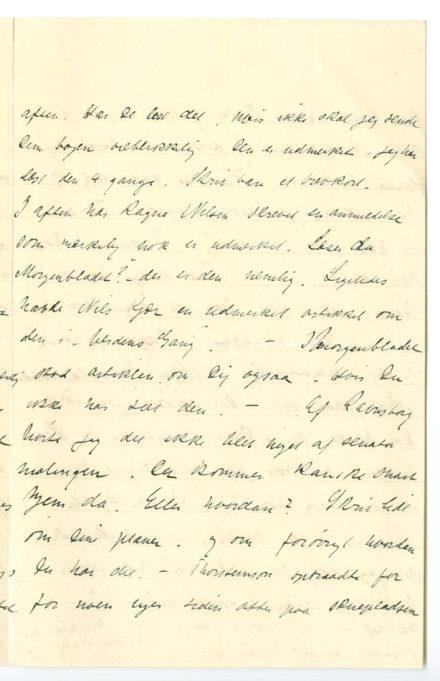 aften. Har De læst det. Hvis ikke skal jeg sende
Dem bogen Den er udmerket. Jeg har
læst den 4 gange. Skriv bare et brevkort.
I aften har Ragna Nielsen skrevet en anmeldelse
som merkelig nok er udmerket. Læser Du
Morgenbladet? - der er den nemlig. Ligeledes
havde Nils Kjær en udmerket artikkel om
den i "Verdens Gang". - I Morgenbladet
stod artiklen om Dig ogsaa. Hvis Du
ikke har seet den. - Af Ravnsborg
hørte jeg det ikke blev noget af senator
malingen. Du kommer kanske snart
hjem da. Eller hvordan? Skriv lidt
om Dine planer. og om forøvrigt hvordan
Du har det. - optraadte for
for noen uger siden atter paa skuepladsen